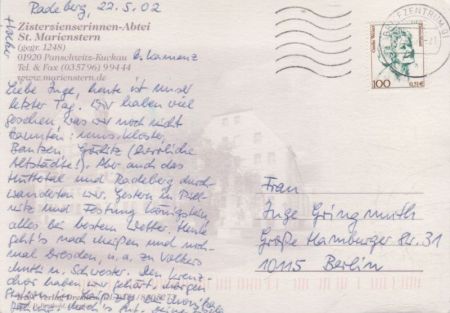 Radeberg, 22.5.02
Zisterzienserinnen-Abtei
St. Marienstern
(gegr. 1248)
01920 Panschwitz-Kuckau b. Kamenz
Tel. & Fax (03 57 96) 9 94 44
www.marienstern.de
Liebe Inge, heute ist unser
letzter Tag. Wir haben viel
gesehen, was wir noch nicht
kannten:
Bautzen, Görlitz (herrliche
Altstädte!). Aber auch das
Hüttetal und Radeberg durch-
wanderten wir. Gestern in Pill-
nitz und Festung Königstein,
alles bei bestem Wetter. Heute
geht's nach Meißen und noch-
mal Dresden, u.a. zu
u. Schwester. Den Kreuz-
chor haben wir gehört, morgen
100
0,51 €
BRIEFZENTRUM 01
Frau
Inge Gringmuth
Große Hamburger Str. 31
10115 Berlin